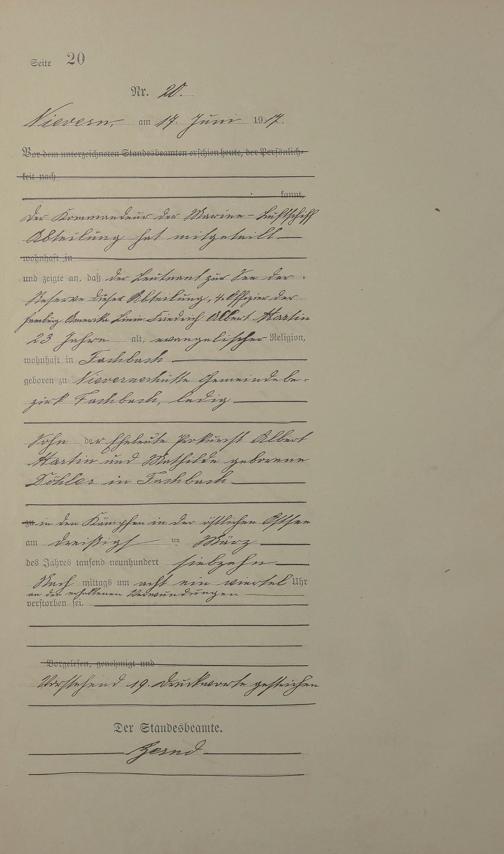 Seite 20
Nr. 20.
Nievern, am 17. Juni 1917.
Vor dem unterzeichneten Standesbeamten erschien heute, der Persönlich-
keit nach
kannt,
Der Kommandeur der Marine-Luftschiff
Abteilung hat mitgeteilt
wohnhaft in
und zeigte an, daß der Leutnant zur See der
Reserve dieser Abteilung, 4. Offizier der
Hamburg Amerika Linie Friedrich Albert Martin
23 Jahre alt, evangelischer Religion,
wohnhaft in Fachbach
geboren zu Nievernerhütte Gemeindebe-
zirk Fachbach, ledig
Sohn der Eheleute Prokurist Albert
Martin und Mathilde geborene
Döhler in Fachbach
in den Kämpfen in der östlichen Ostsee
am dreißigsten März
des Jahres tausend neunhundert siebzehn
Nach mittags um acht ein viertel Uhr
an den erhaltenen Verwundungen
verstorben sei.
Vorgelesen, genehmigt und
Vorstehend 19. Druckworte gestrichen
Der Standesbeamte.